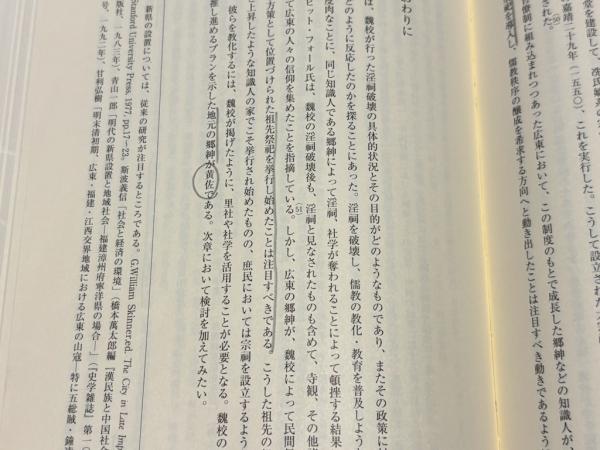 堂を建設して、
嘉靖二十九年(一五五〇)、これを実行した。こうして設立された
(50)
官僚制に組み込まれつつあった広東において、この制度のもとで成長した郷紳などの知識人が、
を導入し、儒教秩序の醸成を希求する方向へと動き出したことは注目すべき動きであるよう
おわりに
は、魏校が行った淫祠破壊の具体的状況とその目的がどのようなものであり、またその政策に
どのように反応したのかを探ることにあった。淫祠を破壊し、儒教の教化・教育を普及しよう
皮肉なことに、同じ知識人である郷紳によって淫祠、社学が奪われることによって頓挫する結果
ビット・フォール氏は、魏校の淫祠破壊後も、淫祠と見なされたものも含めて、寺観、その他
て広東の人々の信仰を集めたことを指摘している。しかし、広東の郷紳が、魏校によって民間
(51)
方策として位置づけられた祖先祭祀を挙行し始めたことは注目すべきである。こうした祖先の
上昇したような知識人の家でこそ挙行され始めたものの、庶民においては宗祠を設立するよう
彼らを教化するには、魏校が掲げたように、里社や社学を活用することが必要となる。魏校の
推し進めるプランを示した地元の郷紳が黄佐である。次章において検討を加えてみたい。
新県の設置については、従来の研究が注目するところである。G.William Skinner,ed. The City in Late Imp
Stanford University Press, 1977, pp.17–23; 斯波義信「社会と経済の環境」(橋本萬太郎編『漢民族と中国社会
版社、一九八三年)、青山一郎「明代の新県設置と地域社会―福建漳州府寧洋県の場合―」(『史学雑誌』第一〇
号、一九九二年)、甘利弘樹「明末清初期、広東・福建・江西交界地域における広東の山寇―特に五総賊・鐘